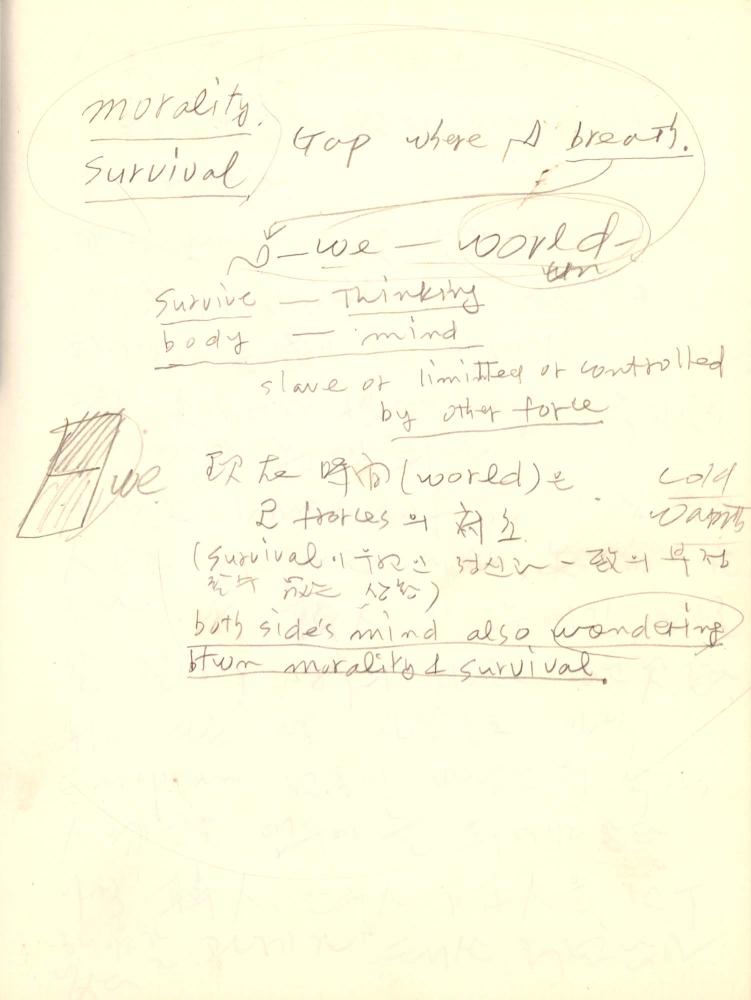 morality.
survival
Gap where 나 breath.
나 – we – world –
survive – Thinking
body – mind
slave or limitted or controlled
by other force
we
現在 時間 (world)은
2 forces의
cold
(survival이 우리의 정신과 一致의
상황)
both side's mind also wondering
btwn morality & survival.